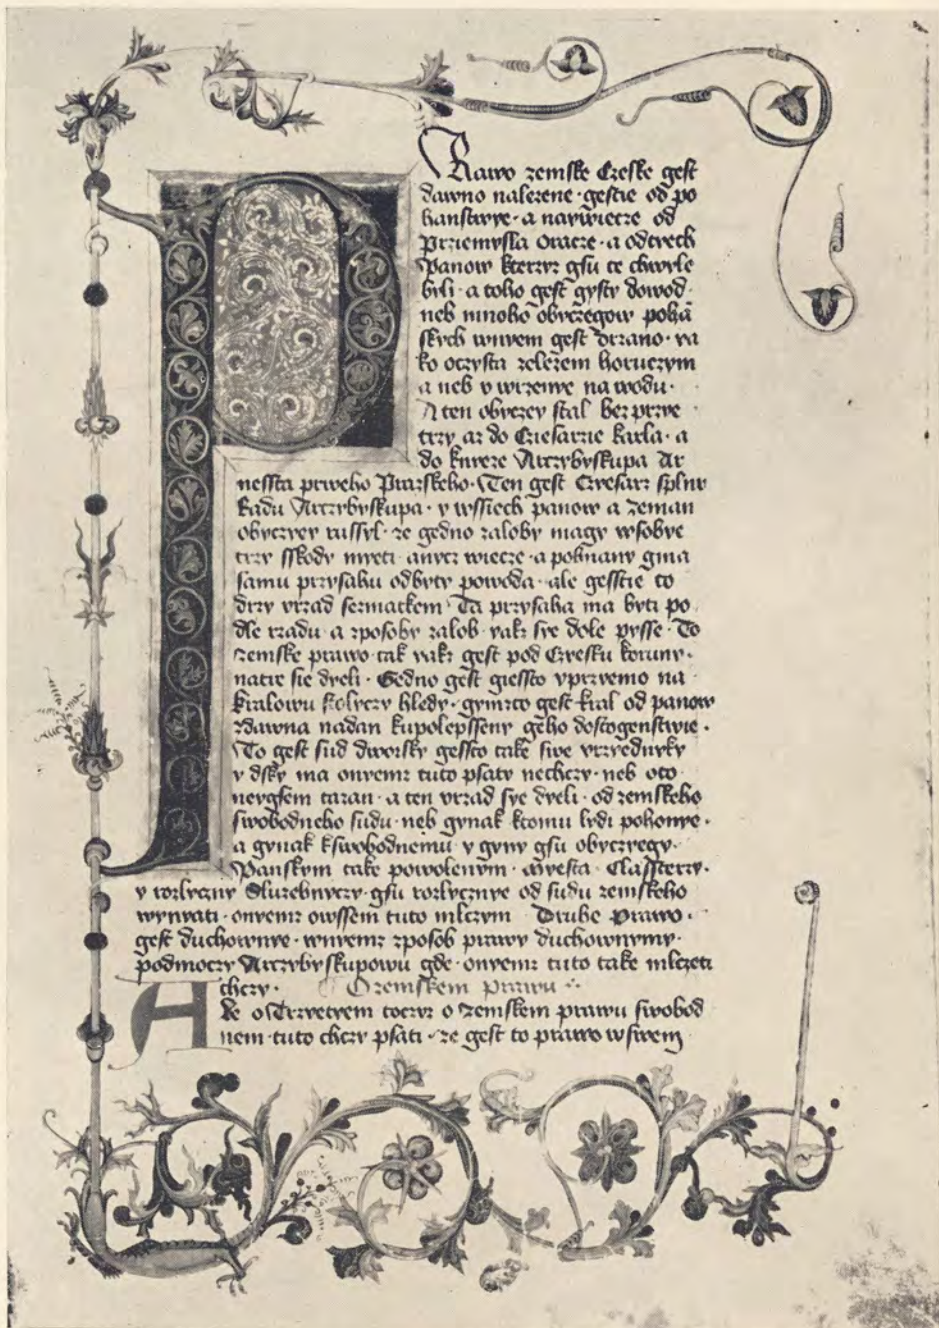 Rawo zemske Czeske gest
dawno nalezene · gestie od po
hanstwye · a naywiecze od
Przemysla Oracze · a odtech
Panow kterzyz gsu te chwyle
byli · a toho gest gysty dowod ·
neb mnoho obyczegow pohā
skych wnyem gest drzano · ya
ko oczysta zelezem horuczym
a neb v wrzenye na wodu ·
A ten obyczey stal bez przye
trzy az do Cziesarzie karla · a
do knyeze Arczybyskupa Ar
nessta prweho Prazskeho · Ten gest Czyesarz splnu
Radu Arczybyskupa · y wssiech panow a zeman
obyczyey russyl · ze gedno zaloby magy wsobye
trzy sskody myeti · anycz wiecze · a pohnany gma
samu przysahu odbyty powoda · ale gesstie to
drzy vrzad sermatkem Ta przysaha ma byti po
dle rzadu · a zposoby zalob · yakz sye dole pysse · To
zemske prawo tak yakz gest pod Czesku korunu ·
natre sie dyeli · Gedno gest giessto vprzyemo na
kralowu stolyczy hledy · gymzto gest kral od panow
Zdawna nadan kupolepsseny geho dostogenstwie ·
To gest sud dworsky gessto take swe vrzyednyky
y dsky ma onyemz tuto psaty nechczy · neb oto
neygsem tazan · a ten vrzad sye dyeli · od zemskeho
swobodneho sudu · neb gynak ktomu lydi pohonye ·
a gynak kswobodnemu y gyny gsu obyczegy ·
Panskym take powolenym · myesta · Classtery ·
y rozlyczny Sluzebnyczy · gsu rozlycznye od sudu zemskeho
wynyati · onyemz owssem tuto mlczym Druhe prawo ·
gest duchownye · wnyemz zposob prawy duchownymy ·
podmoczy Arczybyskupowu gde · onyemz tuto take mlczeti
chczy · O zemskem prawu ·
Ale o Trzyetyem toczyz o zemskem prawu swobod
nem · tuto chczy psati · ze gest to prawo wswem